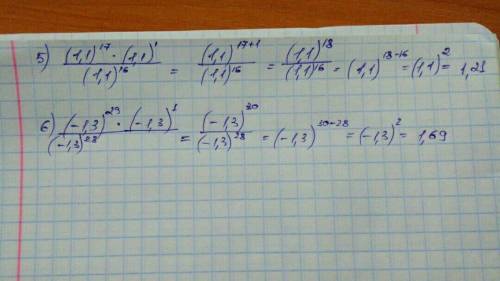 5) (1,1)^17 · (1,1)^1 / (1,1)^16 = (1,1)^17+1 / (1,1)^16 = (1,1)^18 / (1,1)^16 = (1,1)^18-16 = (1,1)^2 = 1,21
6) (-1,3)^29 · (-1,3)^1 / (-1,3)^28 = (-1,3)^30 / (-1,3)^28 = (-1,3)^30-28 = (-1,3)^2 = 1,69